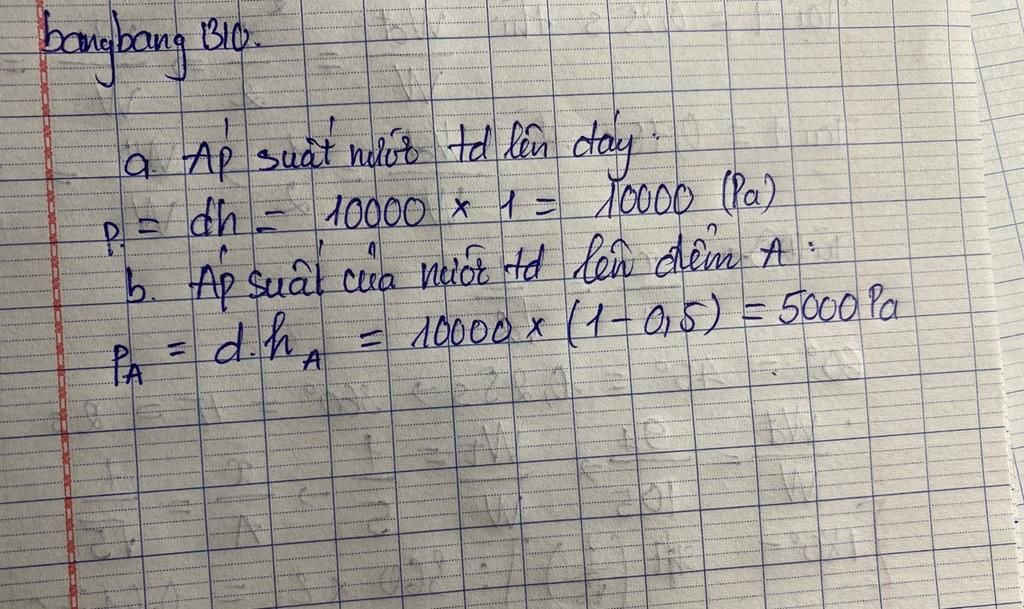 bangbang B10.
a. Áp suất nước td lên đáy:
P = dh = 10000 × 1 = 10000 (Pa)
b. Áp suất của nước td lên điểm A:
PA = d.hA = 10000 × (1 - 0,5) = 5000 Pa